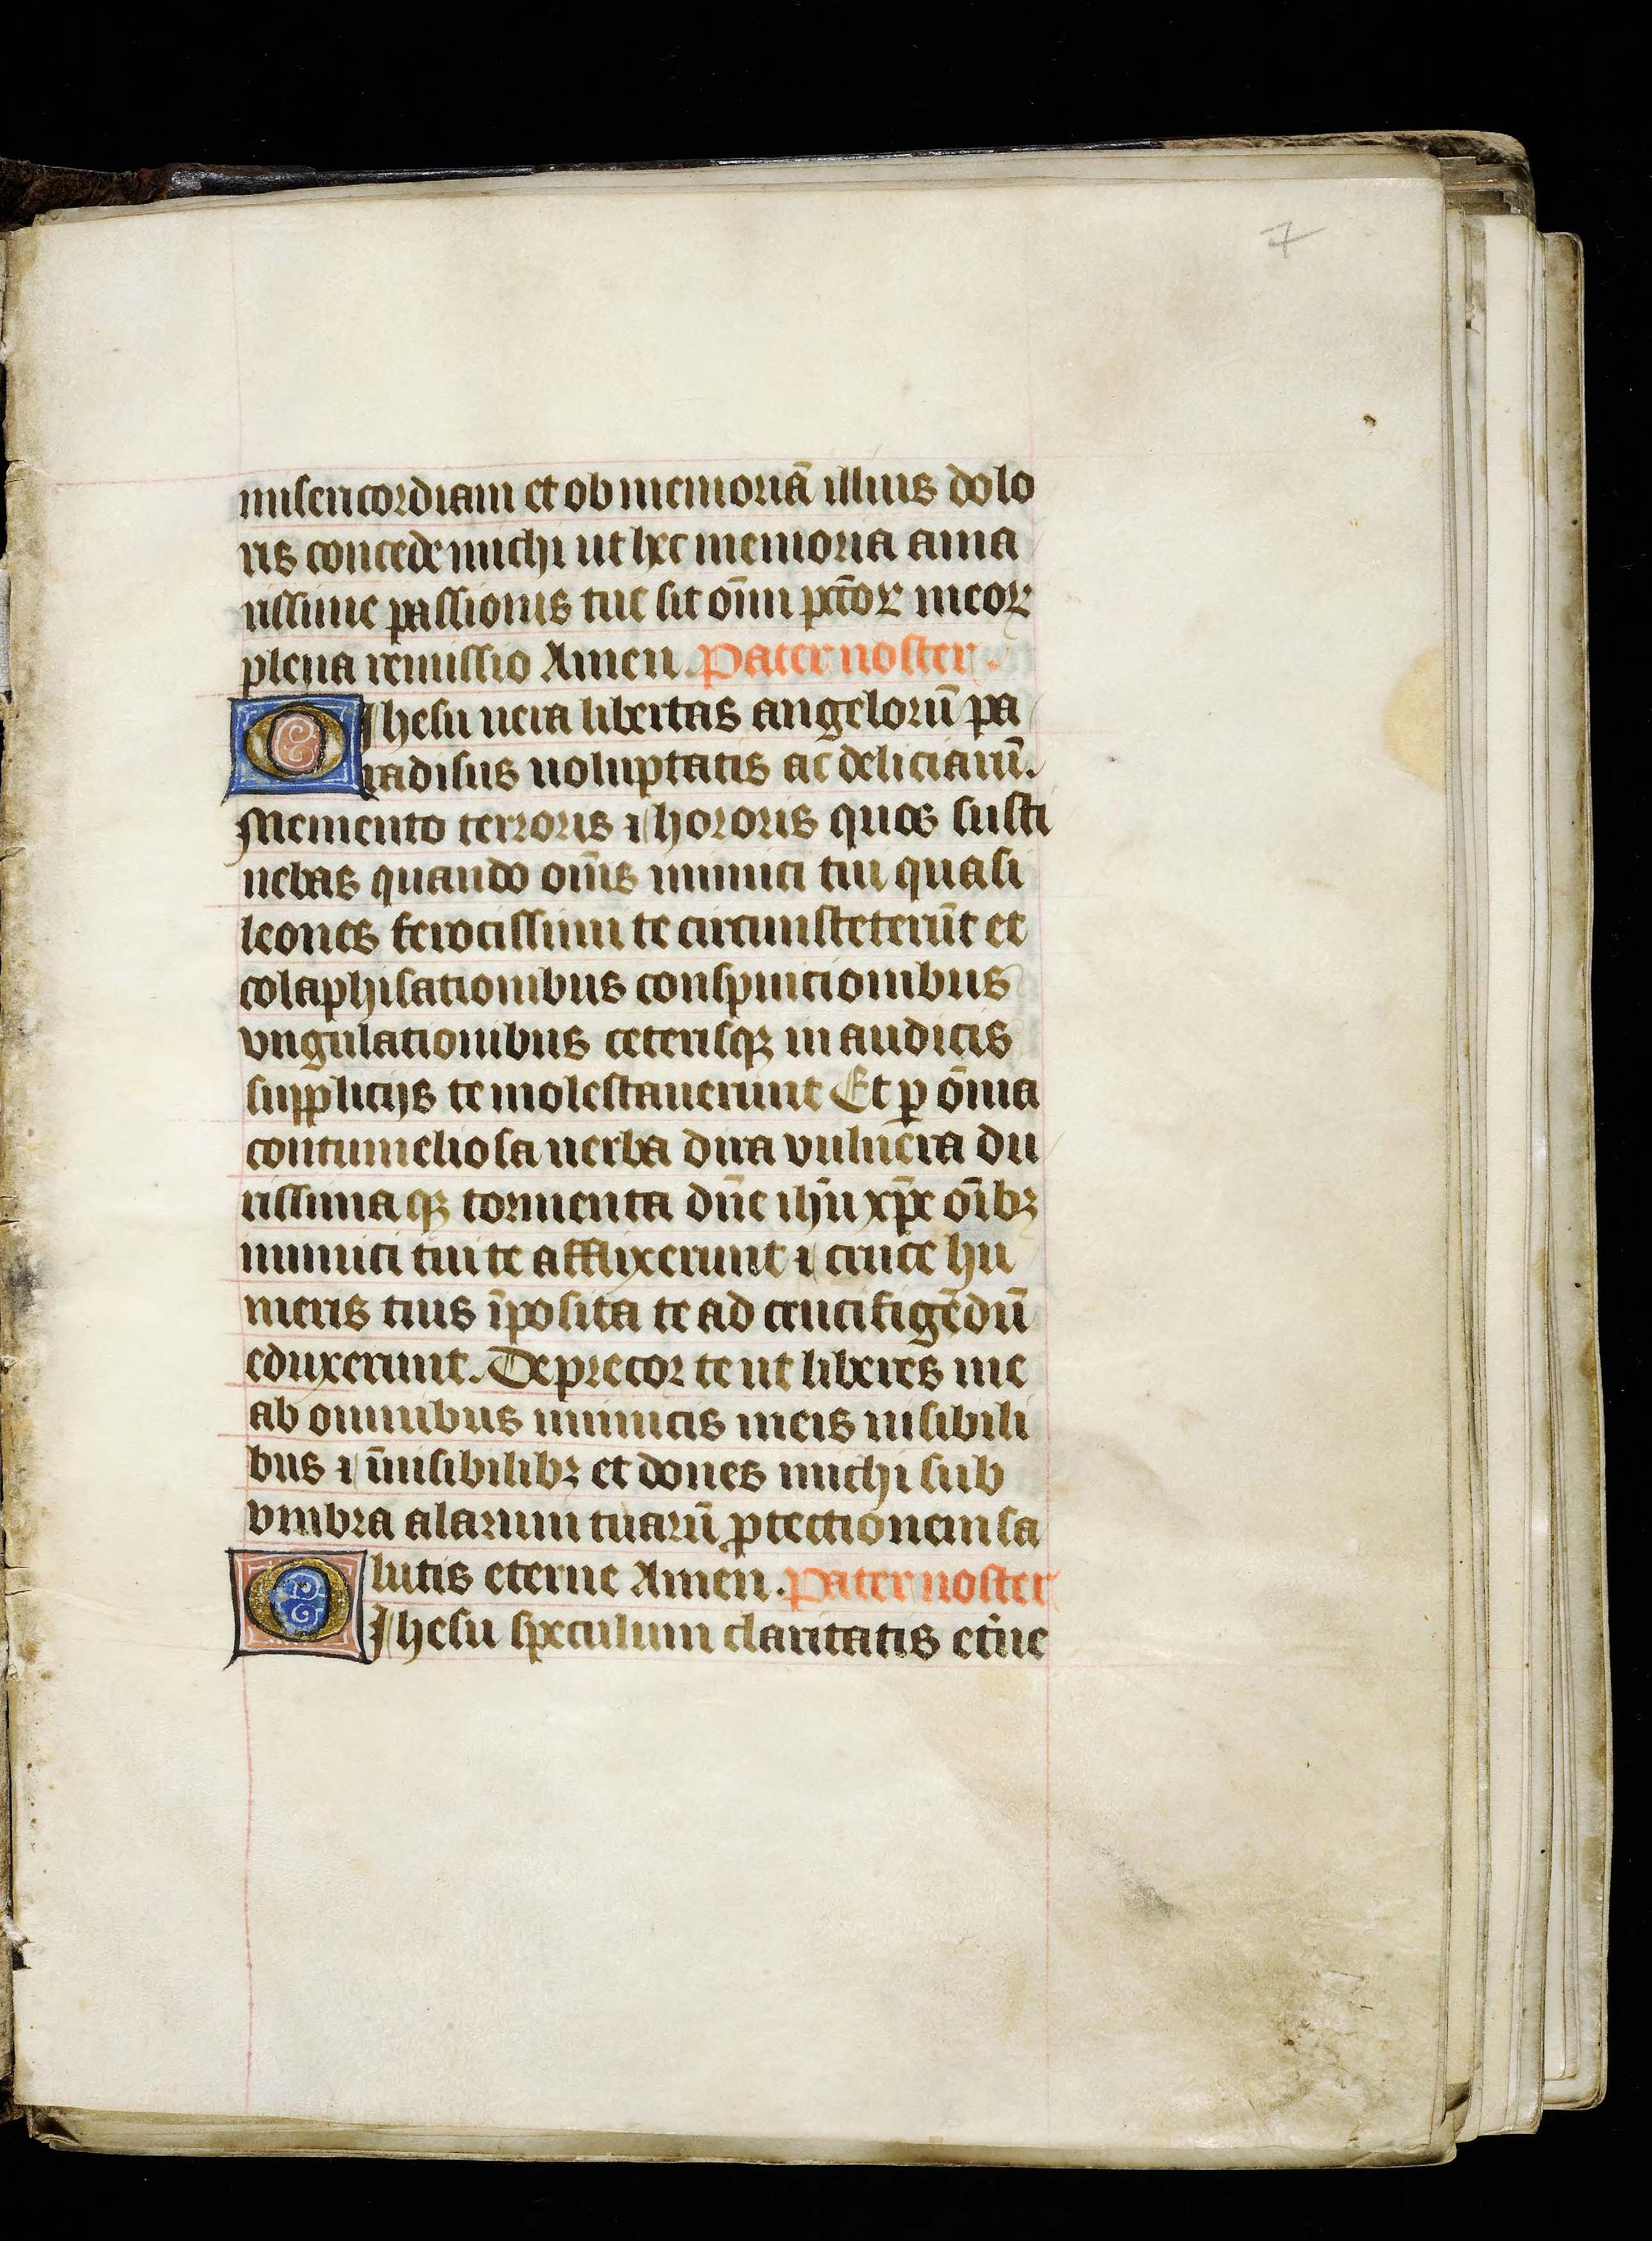 7
misericordiam et ob memoriā illius dolo
ris concede michi ut hec memoria ama
rissime passionis tue sit om̄i pct̄oꝝ meoꝝ
plena remissio Amen. Pater noster.
O Jhesu uera libertas angelorū pa
radisus uoluptatis ac deliciarū.
Memento terroris ⁊ hororis quos susti
nebas quando om̄s inimici tui quasi
leones ferocissimi te circumsteterūt et
colaphisationibus conspuicionibus
vngulationibus ceterisqꝫ in audicis
supplicijs te molestauerunt Et ꝑ om̄ia
contumeliosa uerba dira vulnera du
rissima qꝫ tormenta dn̄e ihū xp̄e oībꝫ
inimici tui te afflixerunt ⁊ cruce hu
meris tuis īposita te ad crucifigēdū
eduxerunt. Deprecor te ut liberes me
ab omnibus inimicis meis uisibili
bus ⁊ īuisibilibꝫ et dones michi sub
vmbra alarum tuarū ꝓtectionem sa
lutis eterne Amen. Pater noster
O Jhesu speculum claritatis et̾ne